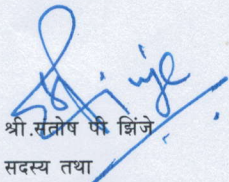 श्री.संतोष पी झिंजे
सदस्य तथा